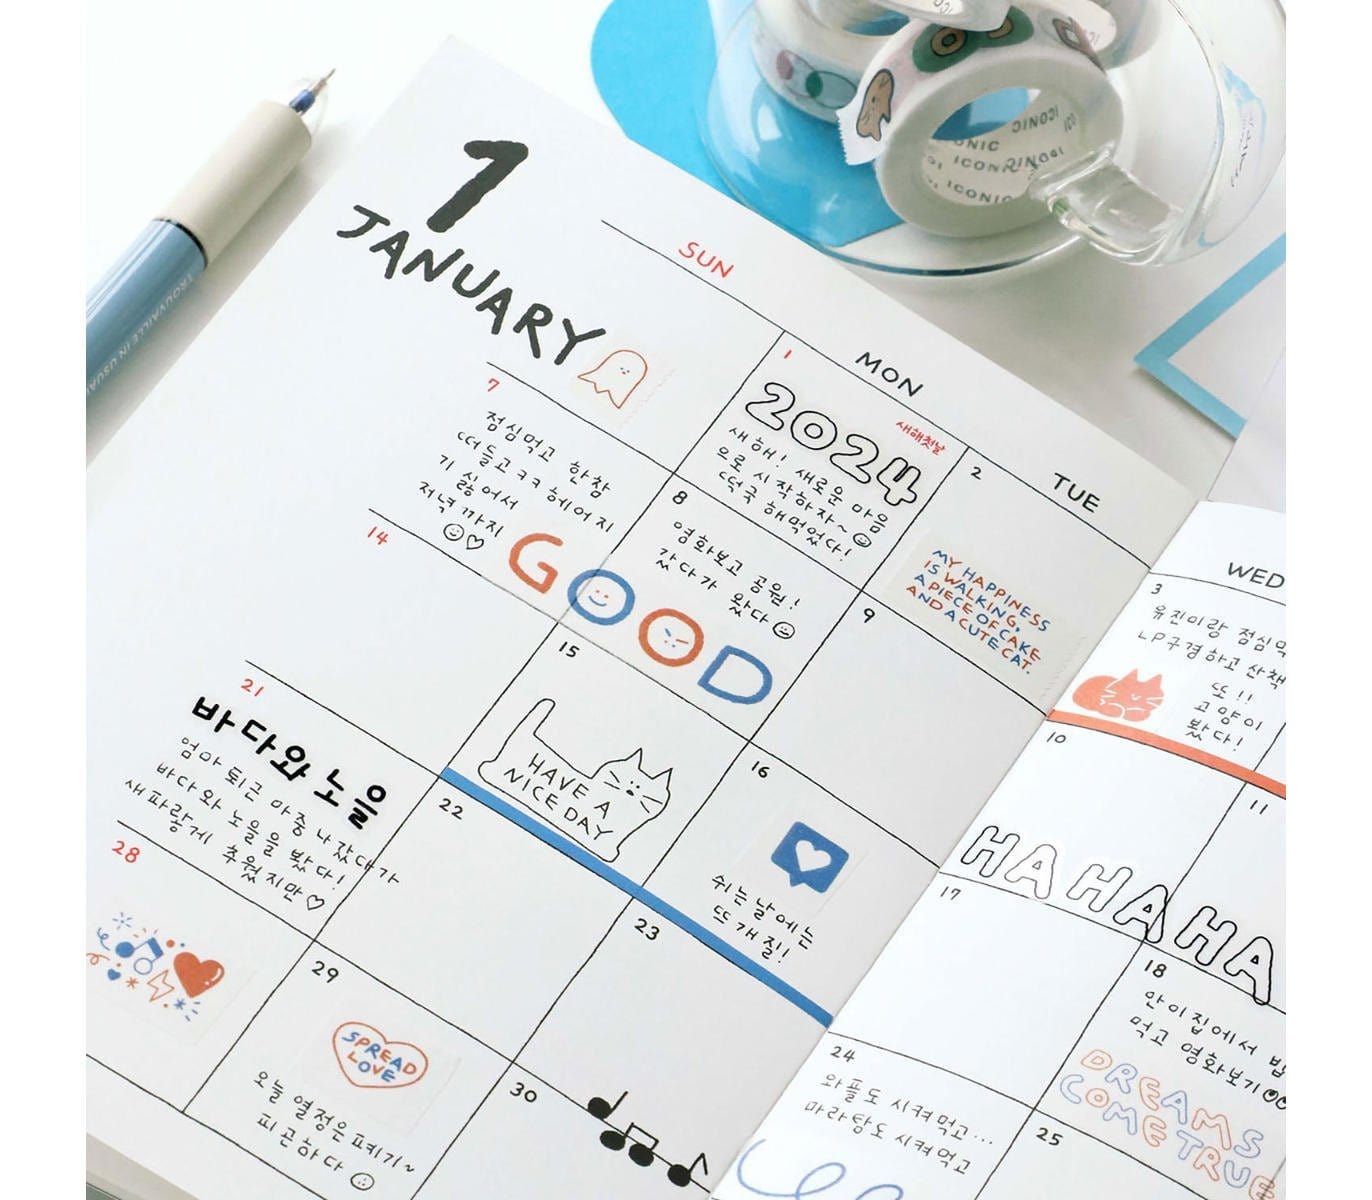 1
JANUARY
SUN
MON
TUE
WED
1
새해첫날
2024
새해! 새로운 마음
으로 시작하자~
떡국 해먹었다!
2
MY HAPPINESS
IS WALKING,
A PIECE OF CAKE
AND A CUTE CAT.
3
유진이랑 점심먹
LP구경하고 산책
또!!
고양이
봤다!
7
점심먹고 한참
떠들고ㅋㅋ 헤어지
기 싫어서
저녁까지
8
영화보고 공원!
갔다가 왔다
GOOD
9
10
11
HA HA HA
14
15
HAVE A
NICE DAY
16
쉬는 날에는
뜨개질!!
17
18
안이집에서 밥
먹고 영화보기
DREAMS
COME TRUE
21
바다와 노을
엄마 퇴근 마중 나갔다가
바다와 노을을 봤다!
새파랗게 추웠지만
22
23
24
와플도 시켜먹고...
마라탕도 시켜먹고
25
28
29
SPREAD
LOVE
오늘 열정은 여기~
피곤하다
30
TROUVAILLE IN USUAL
ICONIC
ICONIC
ICONIC